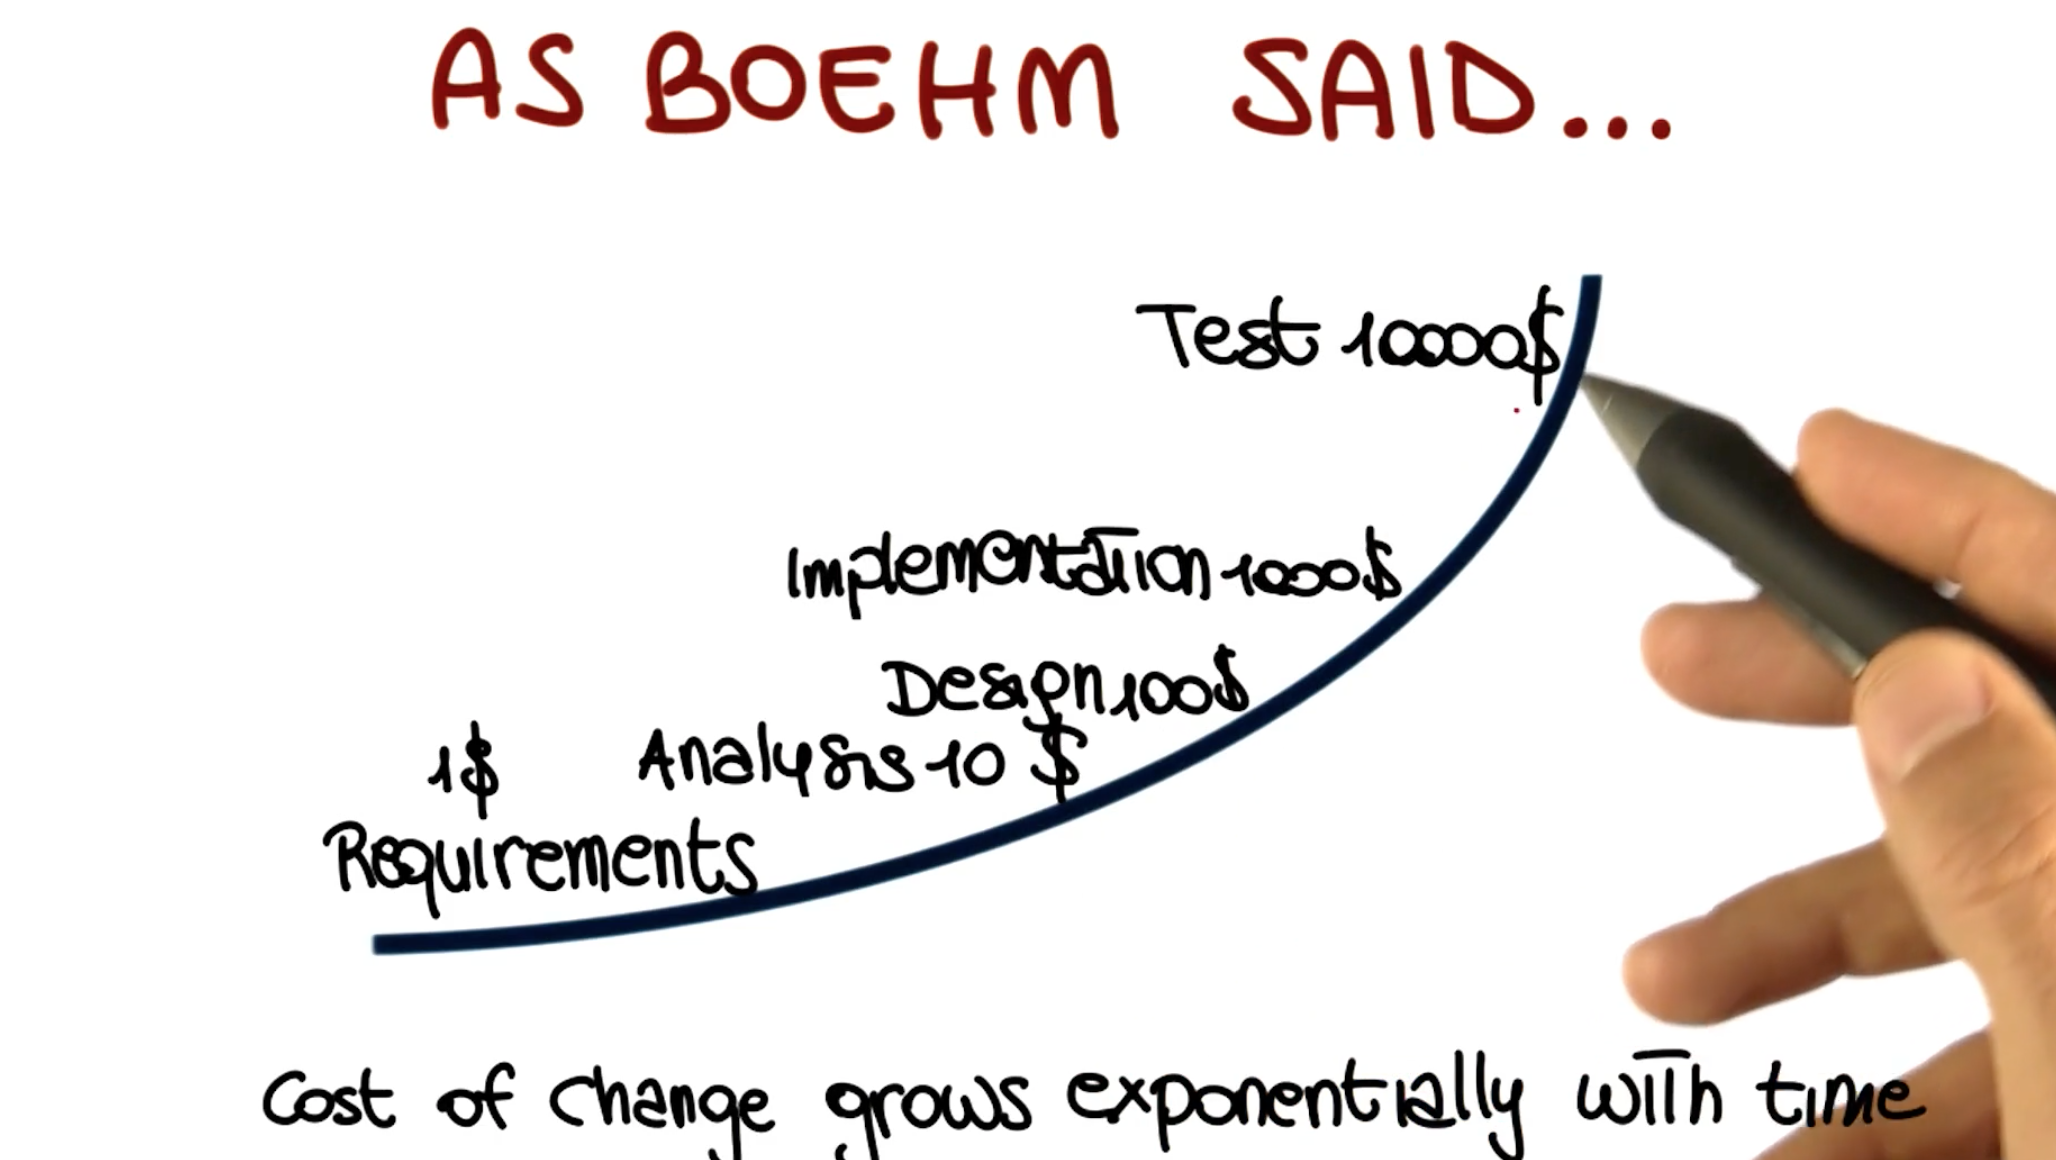 AS BOEHM SAID...
Test 10000$
Implementation 1000$
Design 100$
1$ Analysis 10 $
Requirements
Cost of change grows exponentially with time